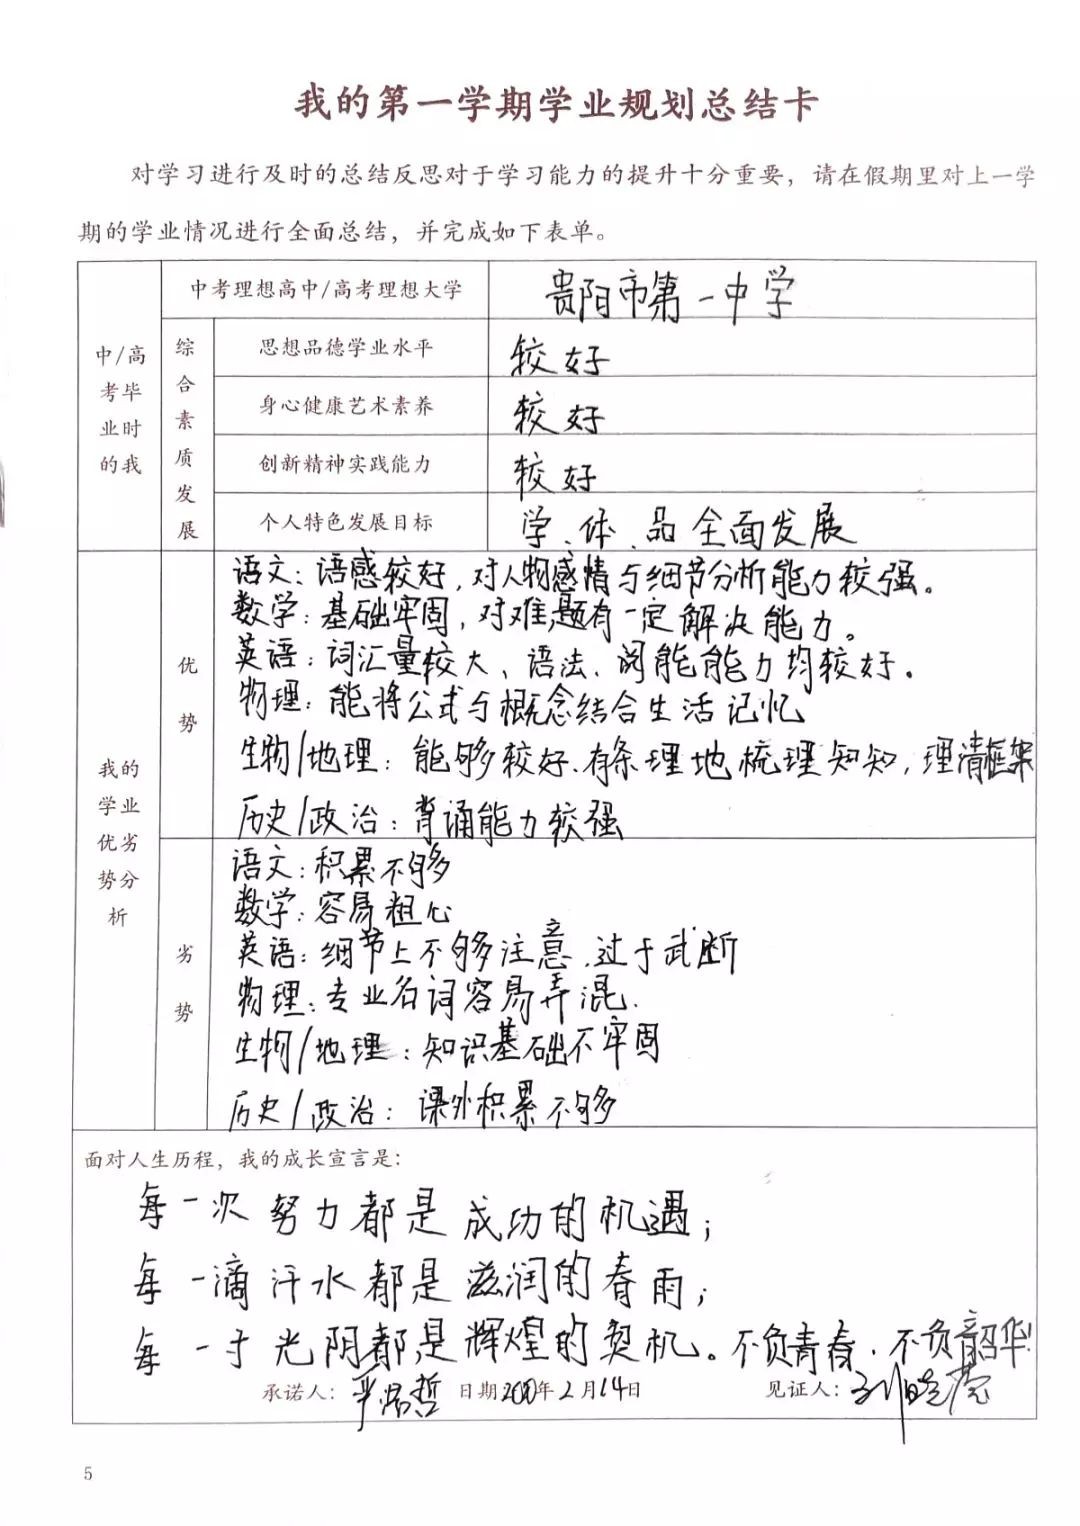 我的第一学期学业规划总结卡
对学习进行及时的总结反思对于学习能力的提升十分重要，请在假期里对上一学
期的学业情况进行全面总结，并完成如下表单。
中/高考毕业时的我
中考理想高中/高考理想大学 贵阳市第一中学
综合素质发展
思想品德学业水平 较好
身心健康艺术素养 较好
创新精神实践能力 较好
个人特色发展目标 学、体、品全面发展
我的学业优劣势分析
优势
语文：语感较好，对人物感情与细节分析能力较强。
数学：基础牢固，对难题有一定解决能力。
英语：词汇量较大、语法、阅能能力均较好。
物理：能将公式与概念结合生活记忆
生物/地理：能够较好、有条理地梳理知知，理清框架
历史/政治：背诵能力较强
劣势
语文：积累不够
数学：容易粗心
英语：细节上不够注意，过于武断
物理：专业名词容易弄混.
生物/地理：知识基础不牢固
历史/政治：课外积累不够
面对人生历程，我的成长宣言是：
每一次努力都是成功的机遇；
每一滴汗水都是滋润的春雨；
每一寸光阴都是辉煌的契机。不负青春，不负韶华！
承诺人： 日期2020年2月14日 见证人：
5